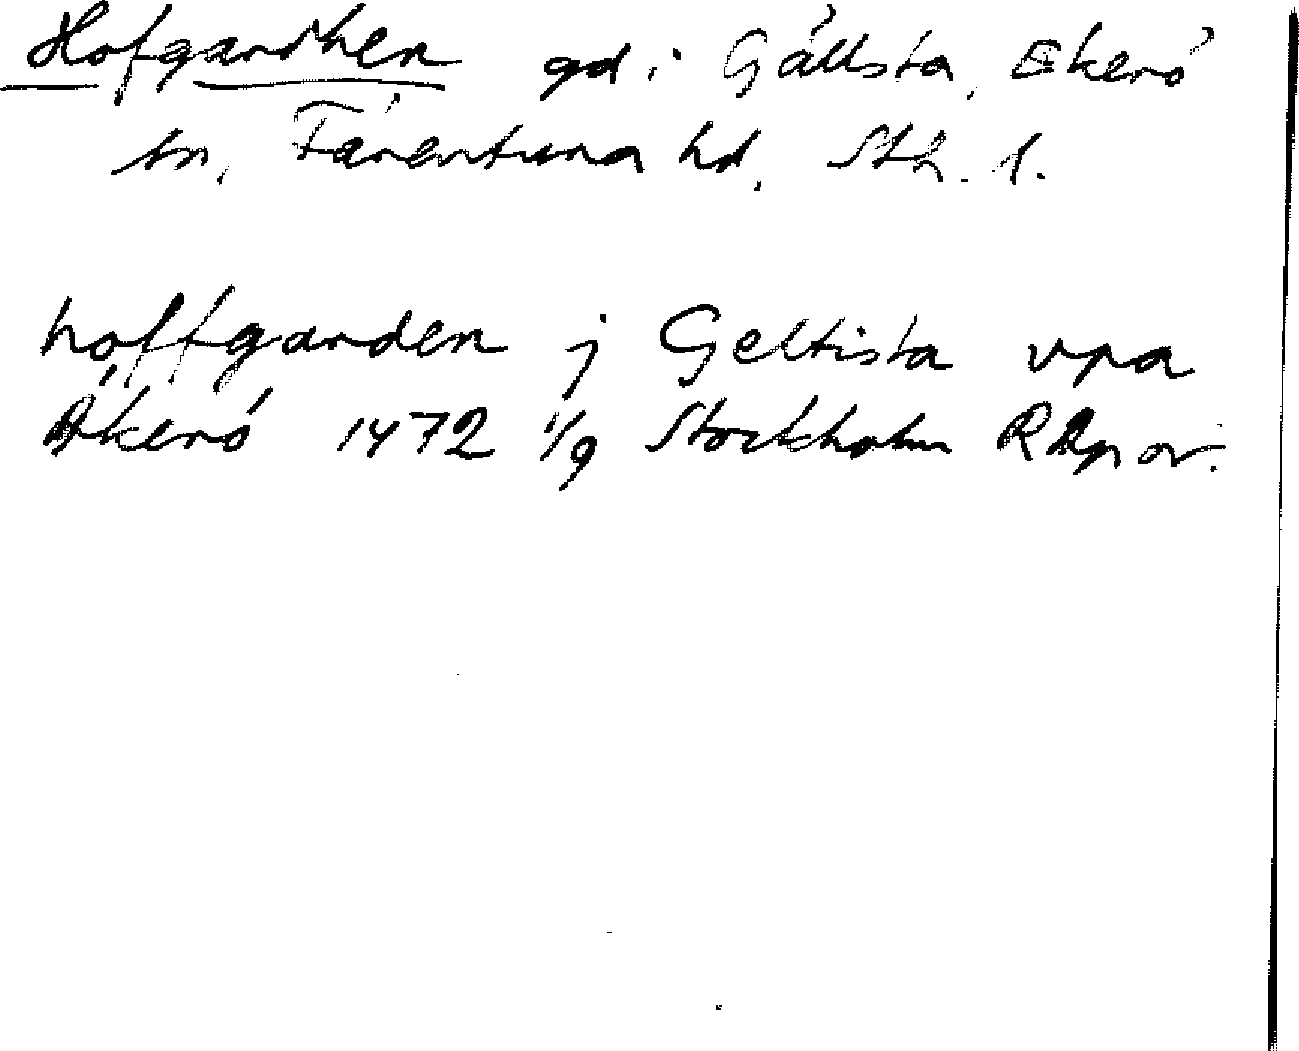 Hofgardhen gd i Gällsta, Ekerö
sn, Färentuna hd, Sth. l.
hoffgarden j Geltista vpa
Akerö 1472 1/9 Stockholm RAp or.